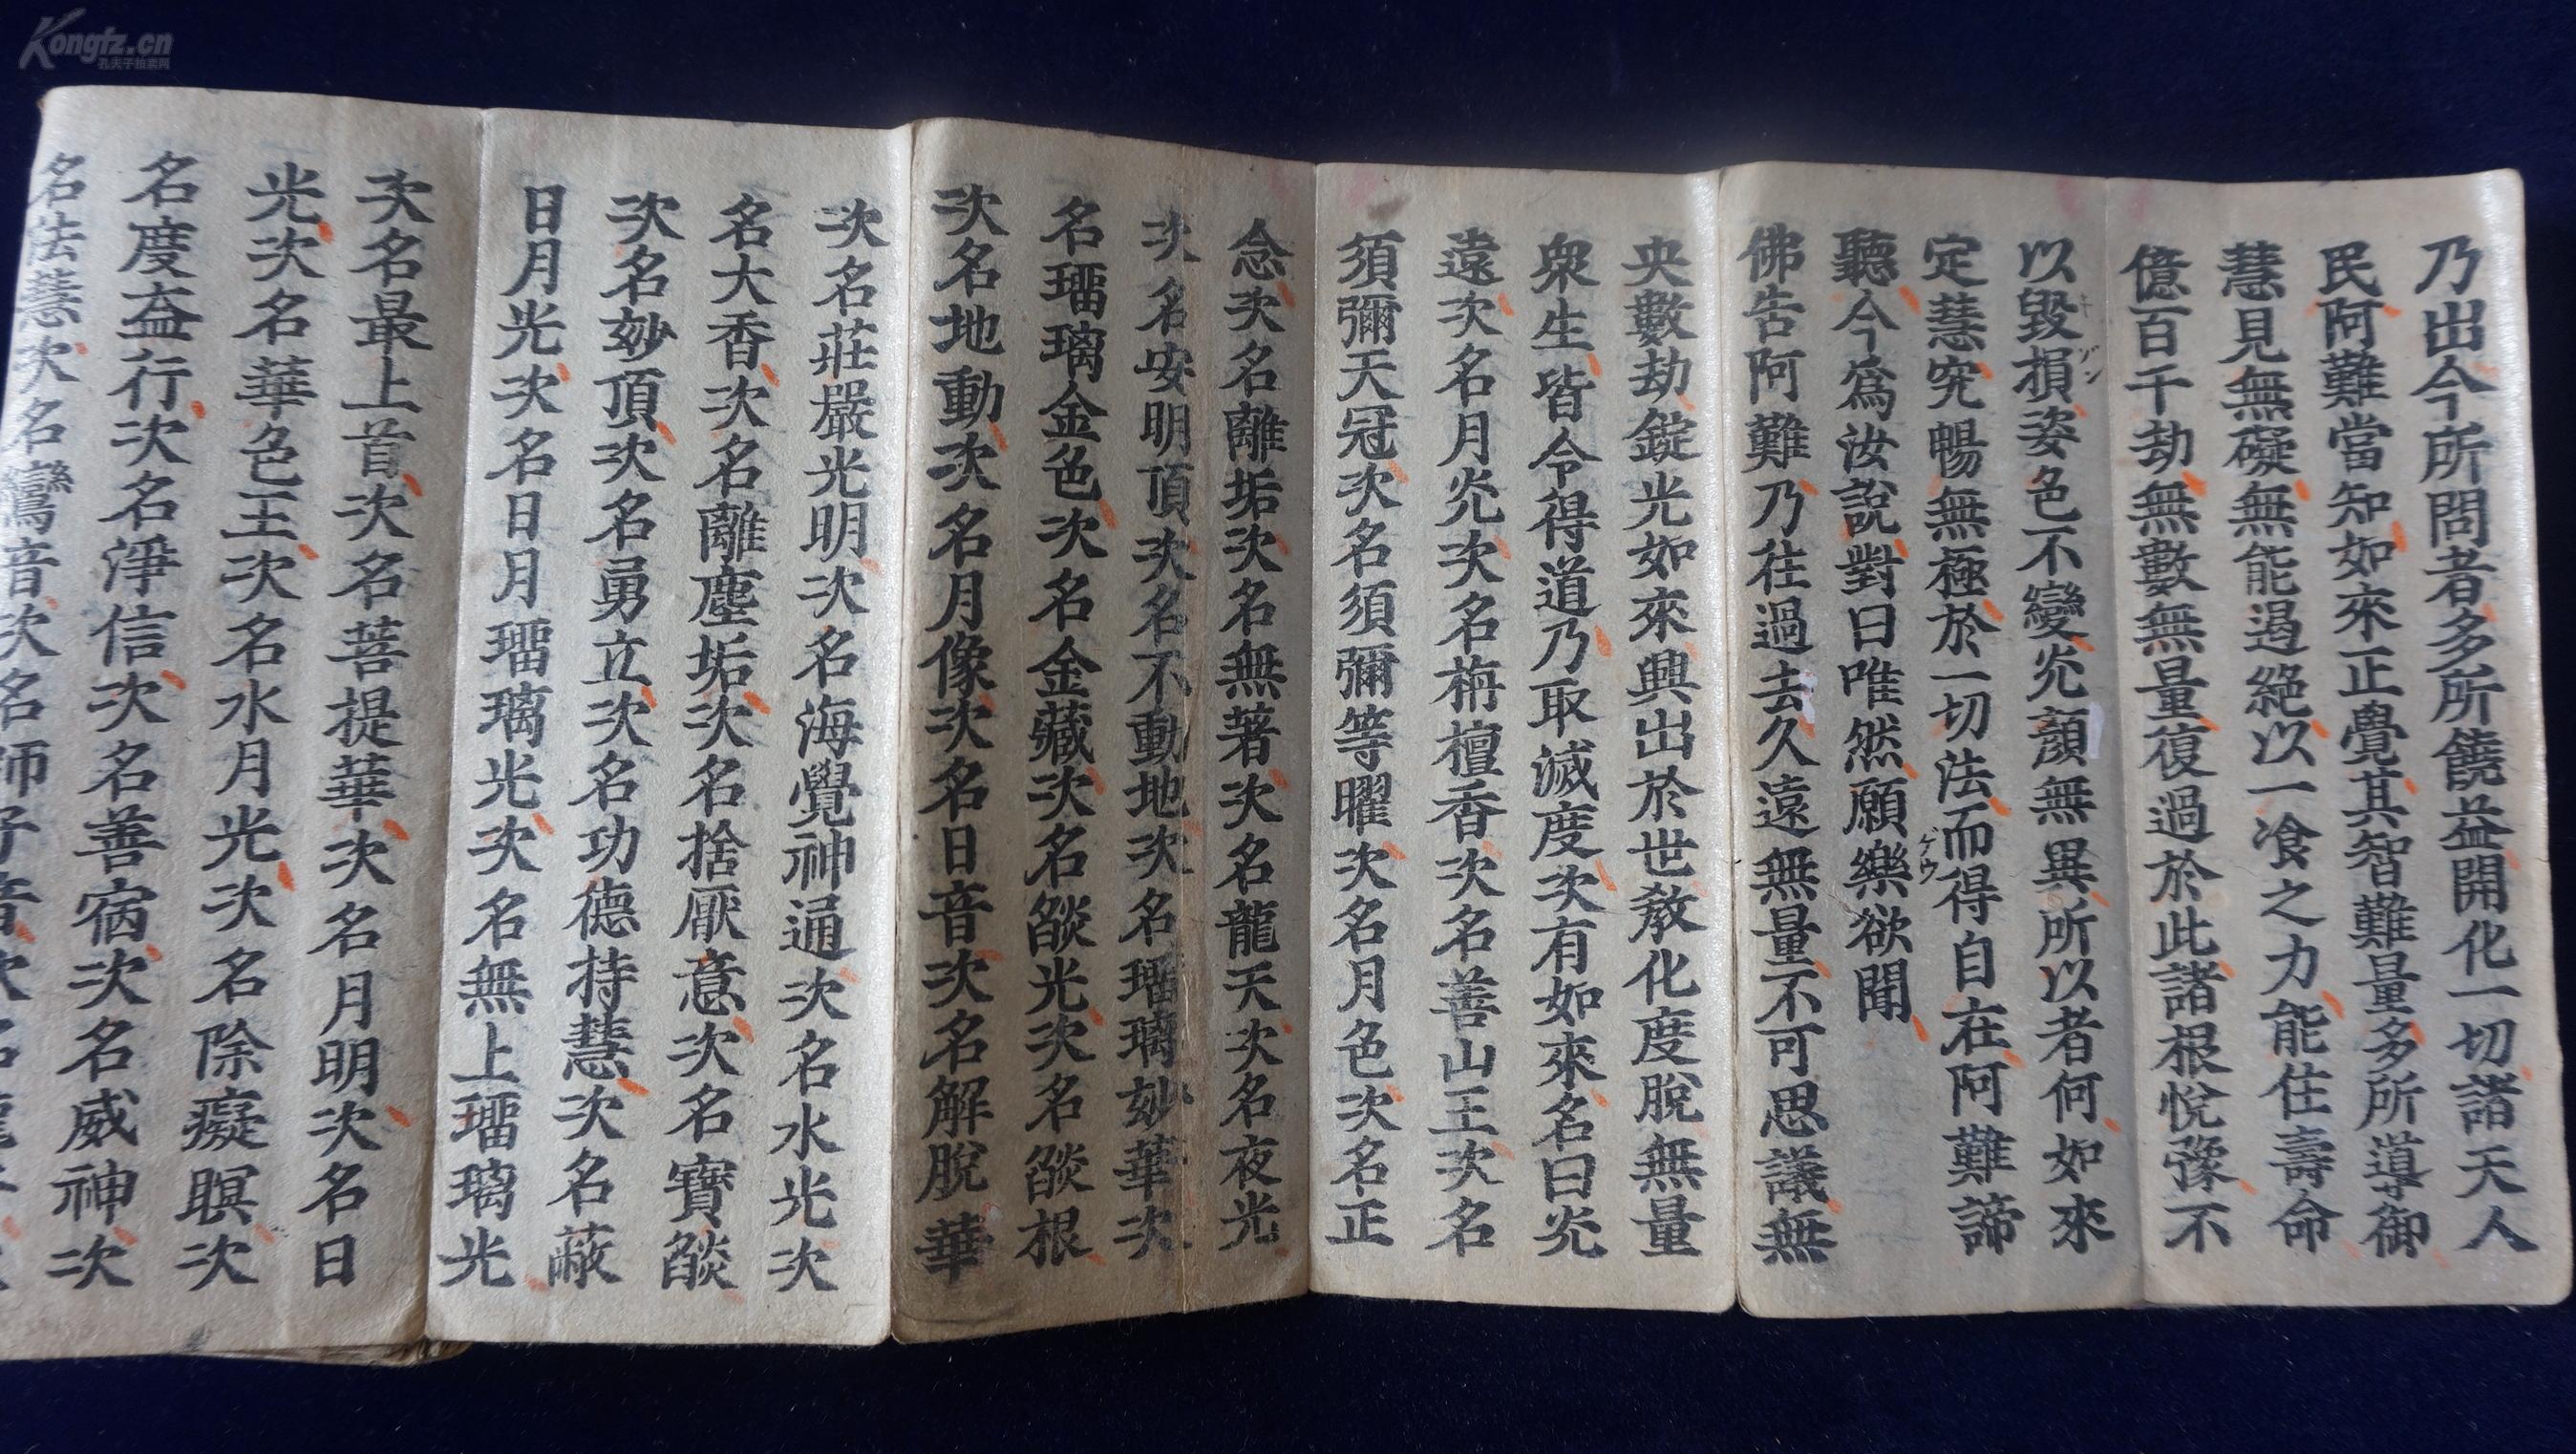 乃出今所問者多所饒益開化一切諸天人
民阿難當知如來正覺其智難量多所導御
慧見無礙無能遏絕以一飡之力能住壽命
億百千劫無數無量復過於此諸根悅豫不
以毀損姿色不變光顏無異所以者何如來
キ ゾン
定慧究暢無極於一切法而得自在阿難諦
聽今爲汝說對曰唯然願樂欲聞
ゲウ
佛告阿難乃往過去久遠無量不可思議無
央數劫錠光如來興出於世敎化度脫無量
衆生皆令得道乃取滅度次有如來名曰光
遠次名月光次名栴檀香次名善山王次名
須彌天冠次名須彌等曜次名月色次名正
念次名離垢次名無著次名龍天次名夜光
次名安明頂次名不動地次名瑠璃妙華次
名瑠璃金色次名金藏次名燄光次名燄根
次名地動次名月像次名日音次名解脫華
次名莊嚴光明次名海覺神通次名水光次
名大香次名離塵垢次名捨厭意次名寶燄
次名妙頂次名勇立次名功德持慧次名蔽
日月光次名日月瑠璃光次名無上瑠璃光
次名最上首次名菩提華次名月明次名日
光次名華色王次名水月光次名除癡瞑次
名度益行次名淨信次名善宿次名威神次
名法慧次名鸞音次名師子音次名龍音
Kongfz.cn
孔夫子拍卖网